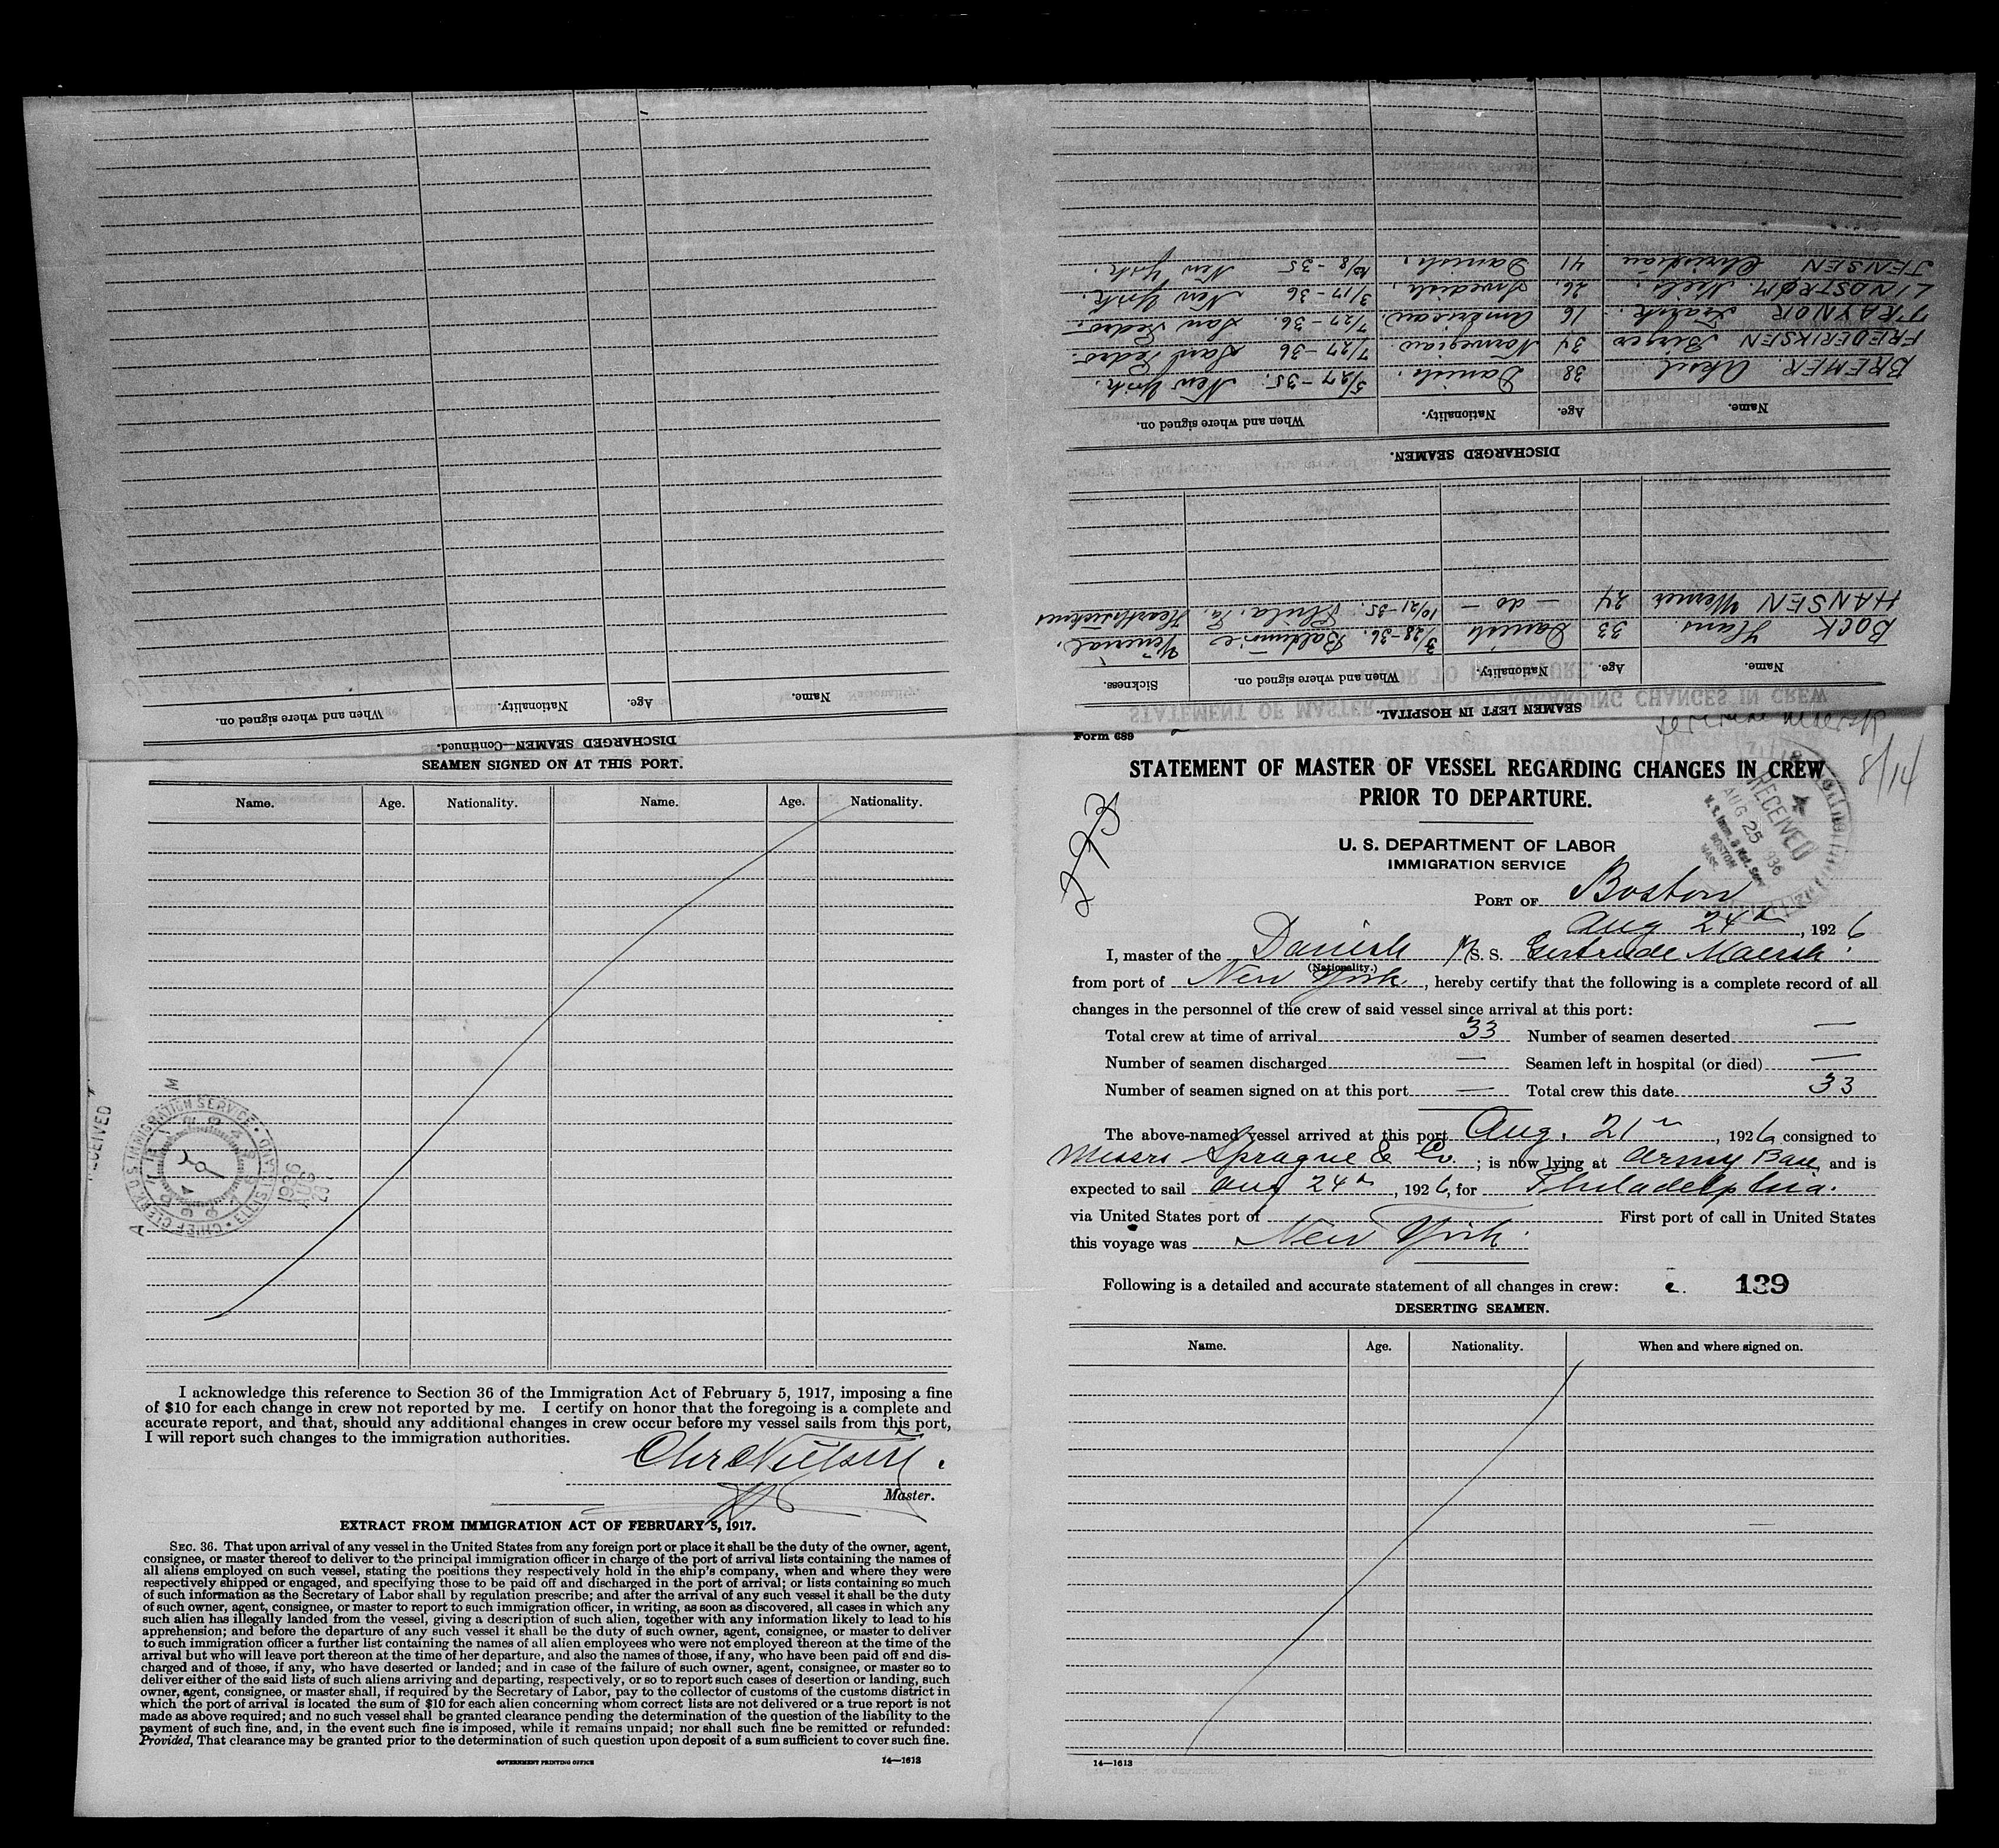 DISCHARGED SEAMEN—Continued.
Name. Age. Nationality. When and where signed on.
SEAMEN LEFT IN HOSPITAL.
Name. Age. Nationality. When and where signed on. Sickness.
BOCK Hans. 33 Danish 3/28-36. Baltimore Venerial.
HANSEN Werner 24 — do — 10/21-35. Phila. Pa. Heartsickness
DISCHARGED SEAMEN.
Name. Age. Nationality. When and where signed on.
BREMER. Aksel 38 Danish. 5/27-35. New York.
FREDERIKSEN Birger 34 Norwegian. 7/27-36 San Pedro.
TRAYNOR Frank. 16 American. 7/27-36. San Pedro.
LINDSTRØM Niels. 26. Swedish. 3/17-36 New York.
JENSEN Christian 41 Danish. 10/8-35 New York.
SEAMEN SIGNED ON AT THIS PORT.
Name. Age. Nationality. Name. Age. Nationality.
RECEIVED
CHIEF CLERK U.S. IMMIGRATION SERVICE
1936
AUG
I acknowledge this reference to Section 36 of the Immigration Act of February 5, 1917, imposing a fine
of $10 for each change in crew not reported by me. I certify on honor that the foregoing is a complete and
accurate report, and that, should any additional changes in crew occur before my vessel sails from this port,
I will report such changes to the immigration authorities.
Chr Nielsen.
Master.
EXTRACT FROM IMMIGRATION ACT OF FEBRUARY 5, 1917.
SEC. 36. That upon arrival of any vessel in the United States from any foreign port or place it shall be the duty of the owner, agent,
consignee, or master thereof to deliver to the principal immigration officer in charge of the port of arrival lists containing the names of
all aliens employed on such vessel, stating the positions they respectively hold in the ship's company, when and where they were
respectively shipped or engaged, and specifying those to be paid off and discharged in the port of arrival; or lists containing so much
of such information as the Secretary of Labor shall by regulation prescribe; and after the arrival of any such vessel it shall be the duty
of such owner, agent, consignee, or master to report to such immigration officer, in writing, as soon as discovered, all cases in which any
such alien has illegally landed from the vessel, giving a description of such alien, together with any information likely to lead to his
apprehension; and before the departure of any such vessel it shall be the duty of such owner, agent, consignee, or master to deliver
to such immigration officer a further list containing the names of all alien employees who were not employed thereon at the time of the
arrival but who will leave port thereon at the time of her departure, and also the names of those, if any, who have been paid off and dis-
charged and of those, if any, who have deserted or landed; and in case of the failure of such owner, agent, consignee, or master so to
deliver either of the said lists of such aliens arriving and departing, respectively, or so to report such cases of desertion or landing, such
owner, agent, consignee, or master shall, if required by the Secretary of Labor, pay to the collector of customs of the customs district in
which the port of arrival is located the sum of $10 for each alien concerning whom correct lists are not delivered or a true report is not
made as above required; and no such vessel shall be granted clearance pending the determination of the question of the liability to the
payment of such fine, and, in the event such fine is imposed, while it remains unpaid; nor shall such fine be remitted or refunded:
Provided, That clearance may be granted prior to the determination of such question upon deposit of a sum sufficient to cover such fine.
GOVERNMENT PRINTING OFFICE 14—1613
Form 689
8/14
STATEMENT OF MASTER OF VESSEL REGARDING CHANGES IN CREW
PRIOR TO DEPARTURE.
RECEIVED
AUG 25 1936
U. S. Imm. & Nat. Serv
BOSTON
MASS.
U. S. DEPARTMENT OF LABOR
IMMIGRATION SERVICE
PORT OF Boston
Aug 24th, 1926
I, master of the Danish M/S. S. Gertrude Maersk.
(Nationality.)
from port of New York, hereby certify that the following is a complete record of all
changes in the personnel of the crew of said vessel since arrival at this port:
Total crew at time of arrival 33 Number of seamen deserted —
Number of seamen discharged — Seamen left in hospital (or died) —
Number of seamen signed on at this port — Total crew this date 33
The above-named vessel arrived at this port Aug. 21st, 1926, consigned to
Messrs Sprague & Co. ; is now lying at Army Base, and is
expected to sail Aug 24th, 1926, for Philadelphia.
via United States port of First port of call in United States
this voyage was New York.
Following is a detailed and accurate statement of all changes in crew: 139
DESERTING SEAMEN.
Name. Age. Nationality. When and where signed on.
14—1613